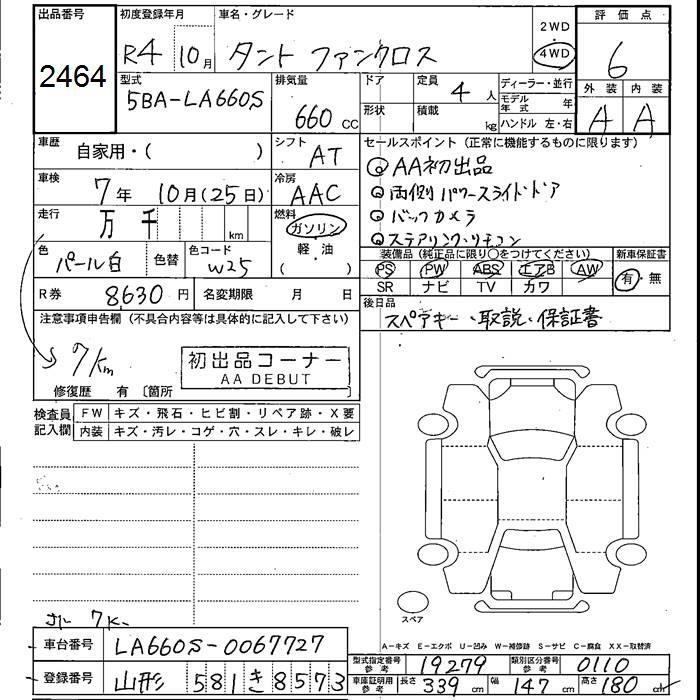 出品番号 初度登録年月 車名・グレード 2WD 4WD 評価点
2464 R4 10月 タント ファンクロス 6
型式 排気量 ドア 定員 4人 ディーラー・並行 外装 内装
5BA-LA660S 660 CC 形状 積載 kg モデル年式 年 A A
ハンドル 左・右
車歴 自家用・( ) シフト AT セールスポイント(正常に機能するものに限ります)
AA初出品
車検 7年 10月(25日) 冷房 AAC 両側パワースライドドア
走行 万 千 km 燃料 ガソリン バックカメラ
軽・油 ステアリング・リモコン
( )
色 パール白 色替 色コード W25 装備品(純正品に限り○をつけてください) 新車保証書
PS PW ABS エアB AW 有・無
SR ナビ TV カワ
R券 8630円 名変期限 月 日 後日品
スペアキー・取説・保証書
注意事項申告欄(不具合内容等は具体的に記入して下さい)
7km 初出品コーナー
AA DEBUT
修復歴 有 〔箇所
検査員記入欄 FW キズ・飛石・ヒビ割・リペア跡・X要
内装 キズ・汚レ・コゲ・穴・スレ・キレ・破レ
スペア
7K
A-キズ E-エクボ U-凹み W-補修跡 S-サビ C-腐食 XX-取替済
車台番号 LA660S-0067727
型式指定番号 参考 19279 類別区分番号 参考 0110
登録番号 山形 581 き 8573
車庫証明用 参考 長さ 339 cm 幅 147 cm 高さ 180 cm